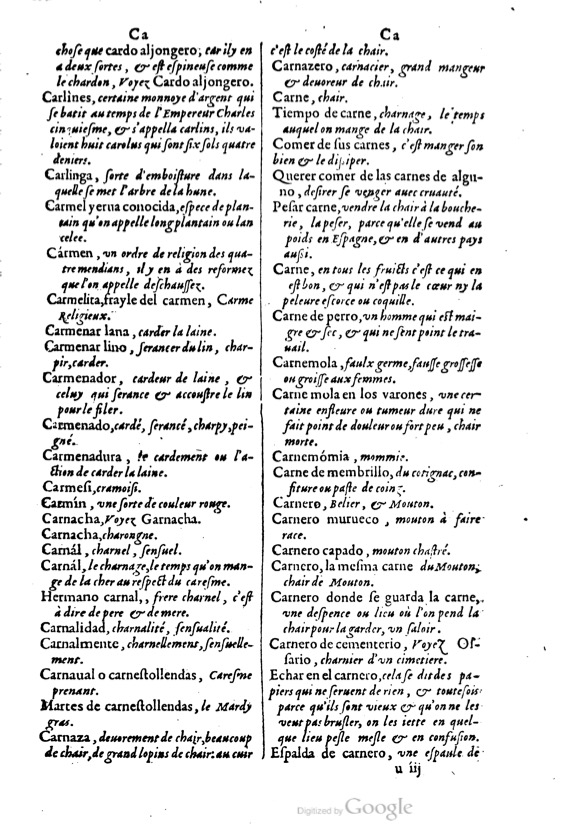 Ca
chose que cardo aljongero; car il y en
a deux sortes, & est espineuse comme
le chardon, Voyez Cardo aljongero.
Carlines, certaine monnoye d'argent qui
se batit au temps de l'Empereur Charles
cinquiesme, & s'appella carlins, ils va-
loient huit carolus qui sont six sols quatre
deniers.
Carlinga, sorte d'emboisture dans la-
quelle se met l'arbre de la hune.
Carmel yerua conocida, espece de plan-
tain qu'on appelle long plantain ou lan
celee.
Cármen, vn ordre de religion des qua-
tre mendians, il y en à des reformez
que l'on appelle deschaussez.
Carmelita, frayle del carmen, Carme
Religieux.
Carmenar lana, carder la laine.
Carmenar lino, serancer du lin, char-
pir, carder.
Carmenador, cardeur de laine, &
celuy qui serance & accoustre le lin
pour le filer.
Carmenado, cardé, serancé, charpy, pei-
gné.
Carmenadura, le cardement ou l'a-
ction de carder la laine.
Carmesi, cramoisi.
Carmín, vne sorte de couleur rouge.
Carnacha, Voyez Garnacha.
Carnacha, charongne.
Carnál, charnel, sensuel.
Carnál, le charnage, le temps qu'on man-
ge de la cher au respect du caresme.
Hermano carnal,, frere charnel, c'est
à dire de pere & de mere.
Carnalidad, charnalité, sensualité.
Carnalmente, charnellement, sensuelle-
ment.
Carnaual o carnestollendas, Caresme
prenant.
Martes de carnestollendas, le Mardy
gras.
Carnaza, deuorement de chair, beaucoup
de chair, de grand lopins de chair: au cuir
Ca
c'est le costé de la chair.
Carnazero, carnacier, grand mangeur
& deuoreur de chair.
Carne, chair.
Tiempo de carne, charnage, le temps
auquel on mange de la chair.
Comer de sus carnes, c'est manger son
bien & le dissiper.
Querer comer de las carnes de algu-
no, desirer se venger auec cruauté.
Pesar carne, vendre la chair à la bouche-
rie, la peser, parce qu'elle se vend au
poids en Espagne, & en d'autres pays
aussi.
Carne, en tous les fruicts c'est ce qui en
est bon, & qui n'est pas le cœur ny la
peleure escorce ou coquille.
Carne de perro, vn homme qui est mai-
gre & sec, & qui ne sent point le tra-
uail.
Carnemola, faulx germe, fausse grossesse
ou groisse aux femmes.
Carne mola en los varones, vne cer-
taine enfleure ou tumeur dure qui ne
fait point de douleur ou fort peu, chair
morte.
Carnemómia, mommie.
Carne de membrillo, du cotignac, con-
fiture ou paste de coinz.
Carnero, Belier, & Mouton.
Carnero murueco, mouton à faire
race.
Carnero capado, mouton chastré.
Carnero, la mesma carne du Mouton,
chair de Mouton.
Carnero donde se guarda la carne,
vne despence ou lieu où l'on pend la
chair pour la garder, vn saloir.
Carnero de cementerio, Voyez Os-
sario, charnier d'vn cimetiere.
Echar en el carnero, cela se dit des pa-
piers qui ne seruent de rien, & toutesfois
parce qu'ils sont vieux & qu'on ne les
veut pas brusler, on les iette en quel-
que lieu pesle mesle & en confusion.
Espalda de carnero, vne espaule de
u iij
Digitized by Google